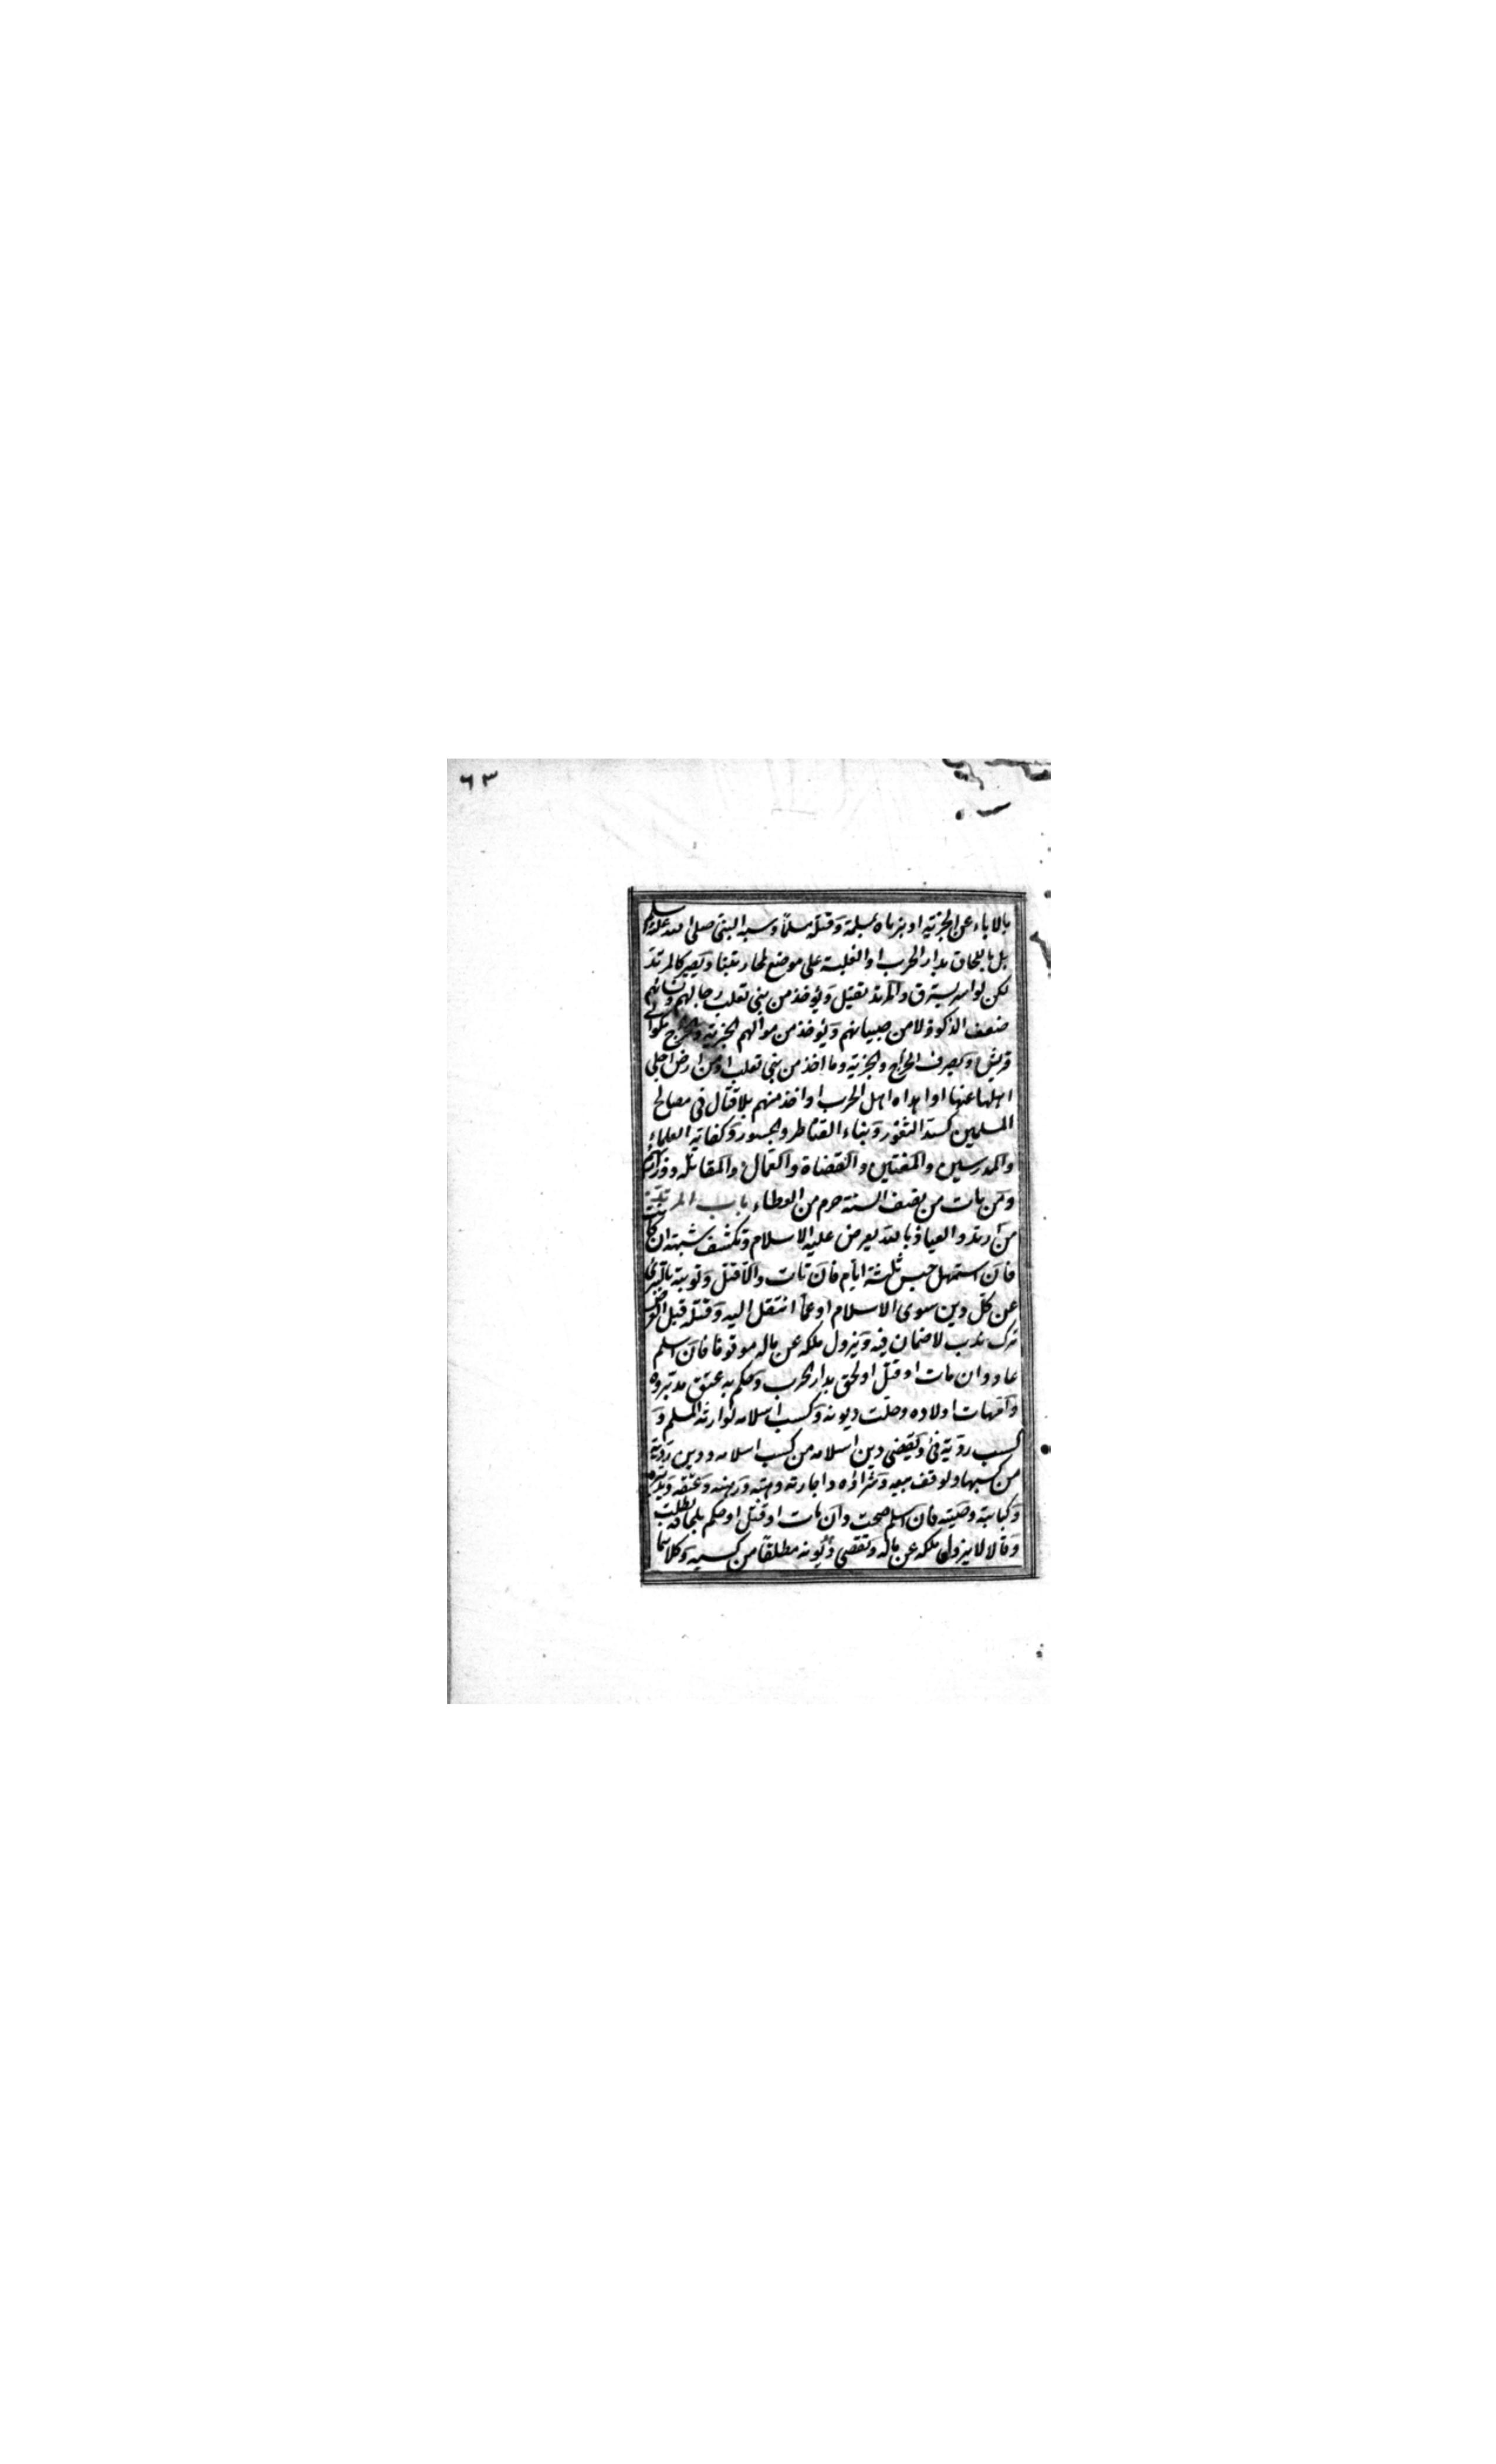 ٦٣
بالاباء عن الجزية او بزناه بمسلمة وقتله مسلما وسبه النبي صلى الله عليه وسلم
بل باللحاق بدار الحرب او الغلبة على موضع لمحاربتنا ويصير كالمرتد
لكن لو اسر يسترق والمرتد يقتل ويؤخذ من بني تغلب رجالهم ونسائهم
ضعف الزكوة لا من صبيانهم ويؤخذ من مواليهم الجزية والخراج كموالي
قريش ويصرف الخراج والجزية وما اخذ من بني تغلب او من ارض اجلي
اهلها عنها او اهداه اهل الحرب او اخذ منهم بلا قتال في مصالح
المسلمين كسد الثغور وبناء القناطر والجسور وكفاية العلماء
والمدرسين والمفتين والقضاة والعمال والمقاتلة وذراريهم
ومن مات من نصف السنة حرم من العطاء باب المرتد
من ارتد والعياذ بالله يعرض عليه الاسلام وتكشف شبهته ان كانت
فان استمهل حبس ثلثة ايام فان تاب والا قتل وتوبته بالتبري
عن كل دين سوى الاسلام او عما انتقل اليه وقتله قبل العرض
ترك ندب لا ضمان فيه ويزول ملكه عن ماله موقوفا فان اسلم
عاد وان مات او قتل او لحق بدار الحرب وحكم به عتق مدبروه
وامهات اولاده وحلت ديونه وكسب اسلامه لوارثه المسلم و
كسب ردته فئ ويقضى دين اسلامه من كسب اسلامه ودين ردته
من كسبها ويوقف بيعه وشراؤه واجارته وهبته ورهنه وعتقه وتدبيره
وكتابته ووصيته فان اسلم صحت وان مات او قتل او حكم بلحاقه بطلت
وقالا لا يزول ملكه عن ماله وتقضى ديونه مطلقا من كسبيه وكلاهما